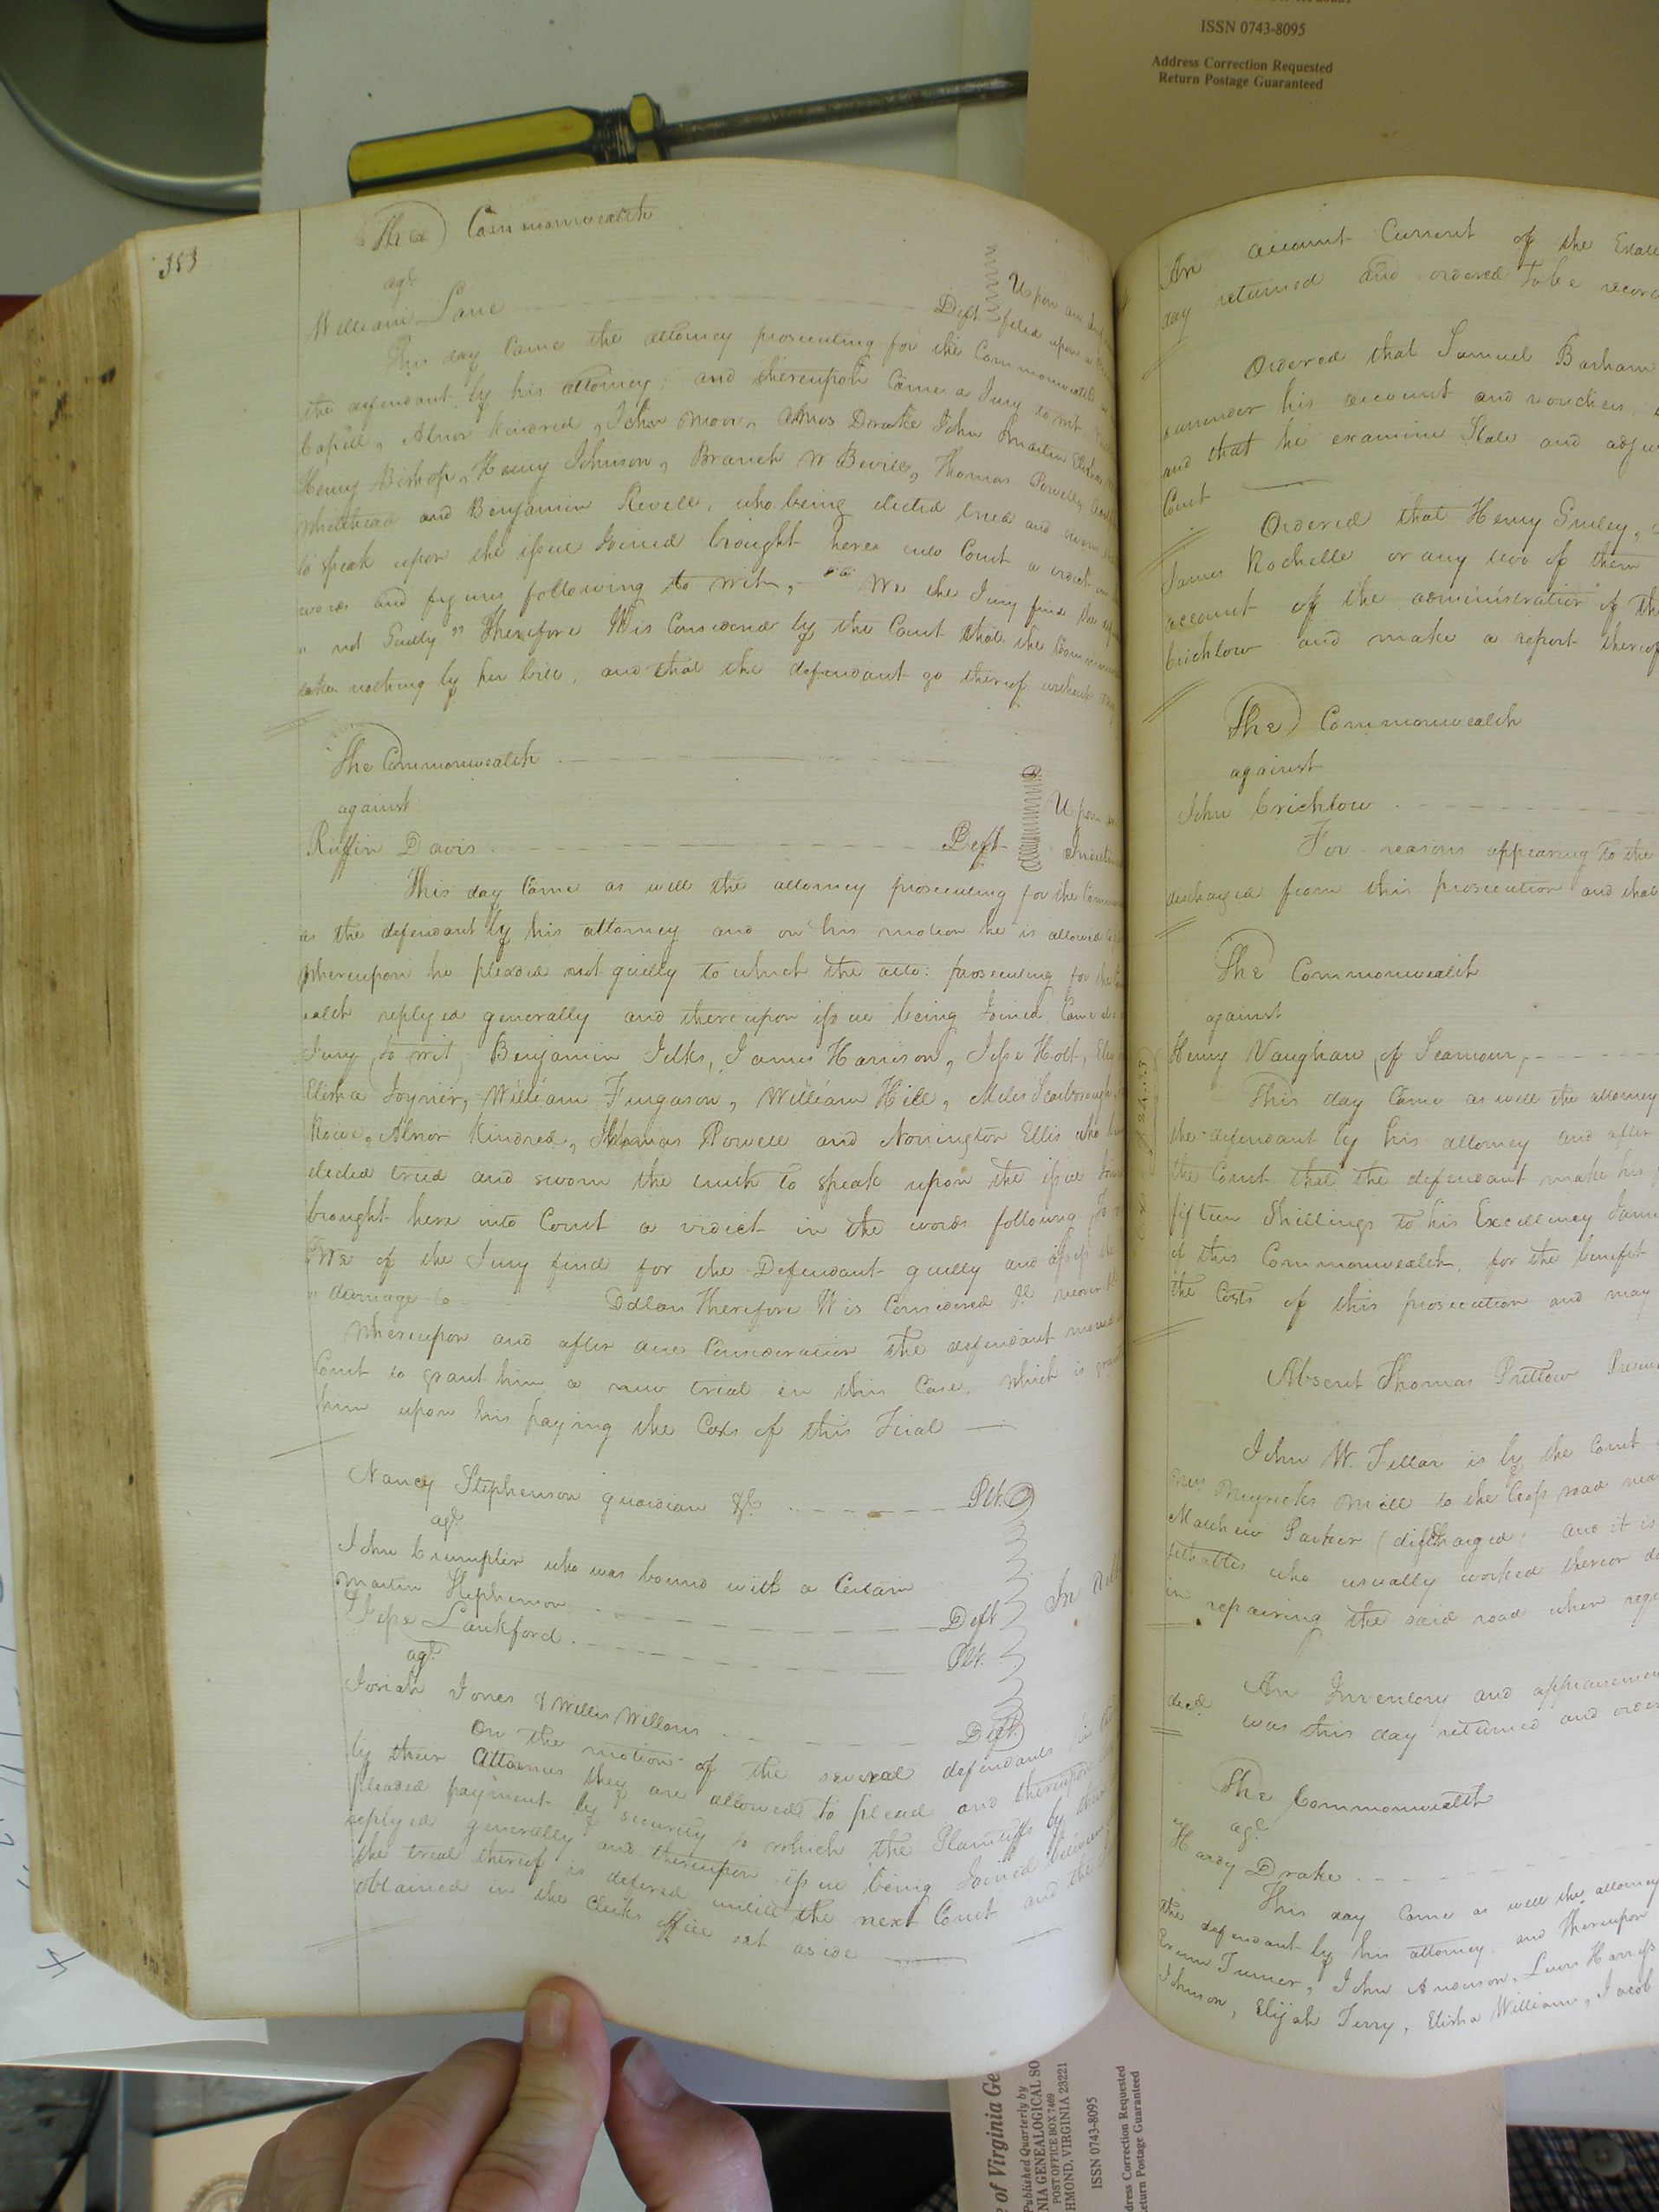 ISSN 0743-8095
Address Correction Requested
Return Postage Guaranteed
353
The Commonwealth
agt
William Lane Deft.
Upon an
filed upon
This day Came the attorney prosecuting for the Commonwealth
the defendant by his attorney; and thereupon Came a Jury to wit,
Capell, Abnor Kindred, John Moor, Amos Drake John
Henry Bishop, Henry Johnson, Branch W Bevill, Thomas Powell,
Whitehead and Benjamin Revell, who being elected tried and sworn
to speak upon the issue Joined brought here into Court a verdict in
words and figures following to wit, "We the Jury find the
" not Guilty" Therefore It is Considered by the Court that the
take nothing by her bill, and that the defendant go thereof without
The Commonwealth
against
Ruffin Davis Deft
Upon
This day Came as well the attorney prosecuting for the
as the defendant by his attorney and on his motion he is allowed
whereupon he pleaded not guilty to which the atto: prosecuting for the
ealth replyed generally and thereupon issue being Joined, Came
Jury to wit, Benjamin Jelks, James Harrison, Jesse Holt,
Elisha Joyner, William Fingason, William Hill, Miles Scarborough
Rowe, Abnor Kindred, Thomas Powell and Norrington Ellis who
elected tried and sworn the truth to speak upon the issue
brought here into Court a virdict in the words following
"We of the Jury find for the Defendant guilty and assess the
" damage to Dollars Therefore It is Considered
Whereupon and after due Consideration the defendant moved
Court to grant him a new trial in this Case, which is
him upon his paying the Costs of this Trial
Nancy Stephenson guardian &c Plt.
agt
John Crumpler who was bound with a Certain
Martin Stephenson Deft
In
Jesse Lankford Plt.
agt
Josiah Jones & Willis Willons Deft.
On the motion of the several defendants
by their Attornies they are allowed to plead and thereupon
pleaded payment by security to which the Plaintiffs by their
replyed generally and thereupon issue being Joined
the trial thereof is defered untill the next Court and the
obtained in the Clerks office set aside
An account Current of the
day returned and ordered to be
Ordered that Samuel Barham
surrender his account and vouchers,
and that he examine State and
Court
Ordered that Henry Gurley,
James Rochelle or any two of them
account of the administration of the
Crichlow and make a report thereof
The Commonwealth
against
John Crichlow
For reasons appearing to the
discharged from this prosecution and that
The Commonwealth
against
Henry Vaughan (of Seamour,
This day Came as well the attorney
the defendant by his attorney and after
the Court that the defendant make his
fifteen Shillings to his Excellency
of this Commonwealth, for the benefit
the Costs of this prosecution and may
Absent Thomas Prettow
John W. Fillar is by the Court
Myricks Mill to the Cross road
Mathew Parker (discharged. and it is
tithables who usually worked thereon
in repairing the said road when
An Inventory and
decd. was this day returned and
The Commonwealth
agt
Hardy Drake
This day Came as well the attorney
the defendant by his attorney, and thereupon
Exum Turner, John Anderson, Lewis Harriss
Johnson, Elijah Terry, Elisha Williams, Jacob
of Virginia Ge
Published Quarterly by
NIA GENEALOGICAL SO
POST OFFICE BOX 7469
HMOND, VIRGINIA 23221
ISSN 0743-8095
dress Correction Requested
eturn Postage Guaranteed